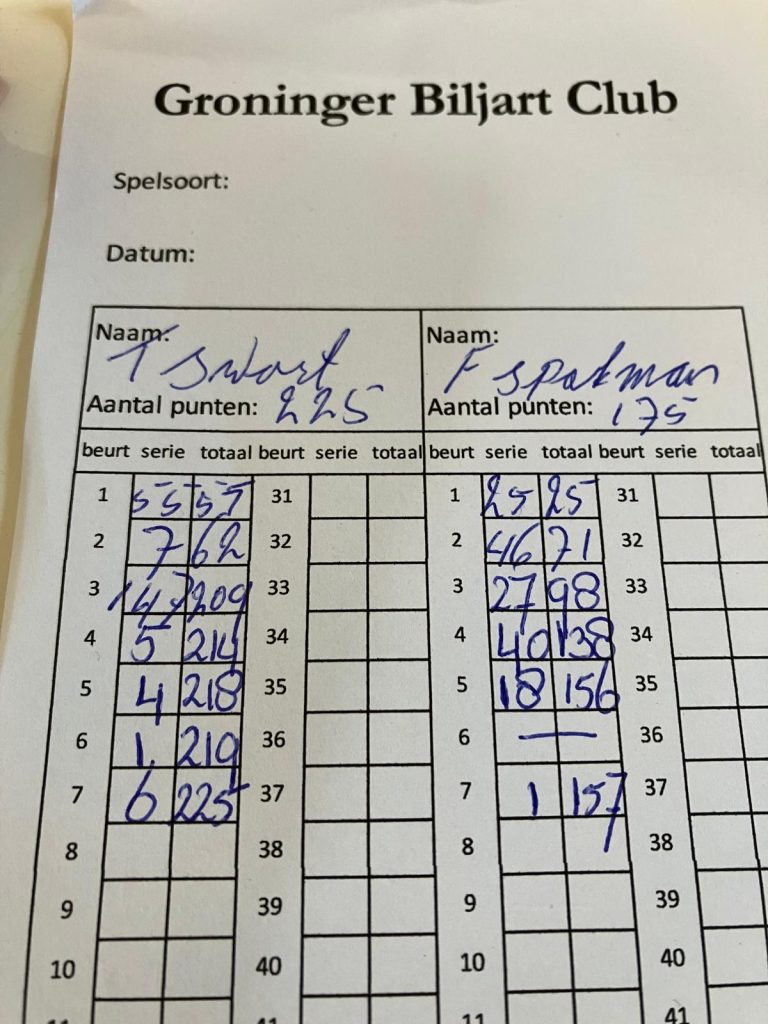 Groninger Biljart Club
Spelsoort:
Datum:
Naam: T Swart Naam: F Spakman
Aantal punten: 225 Aantal punten: 175
beurt serie totaal beurt serie totaal beurt serie totaal beurt serie totaal
1 55 55 31 1 25 25 31
2 7 62 32 2 46 71 32
3 147 209 33 3 27 98 33
4 5 214 34 4 40 138 34
5 4 218 35 5 18 156 35
6 1. 219 36 6 — 36
7 6 225 37 7 1 157 37
8 38 8 38
9 39 9 39
10 40 10 40
11 41 11 41